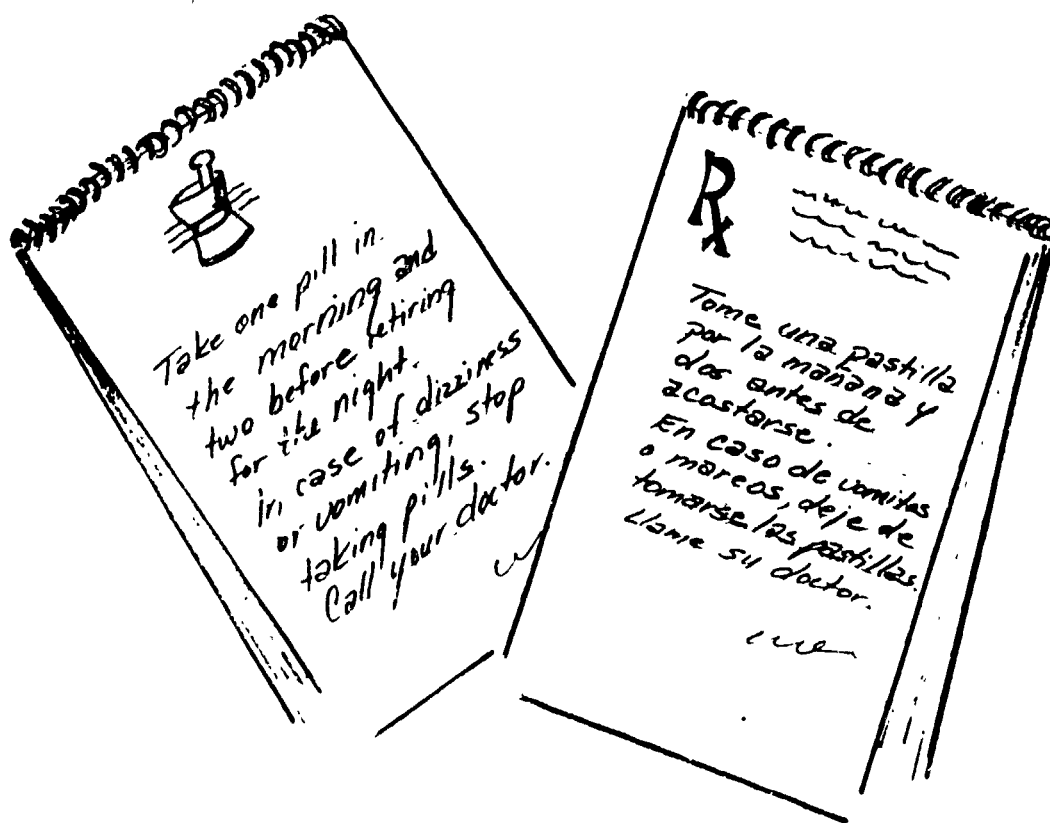 Take one pill in
the morning and
two before retiring
for the night.
In case of dizziness
or vomiting, stop
taking pills.
Call your doctor.
Rx
Tome una pastilla
por la mañana y
dos antes de
acostarse.
En caso de vomitos
o mareos, deje de
tomarse las pastillas.
Llame su doctor.